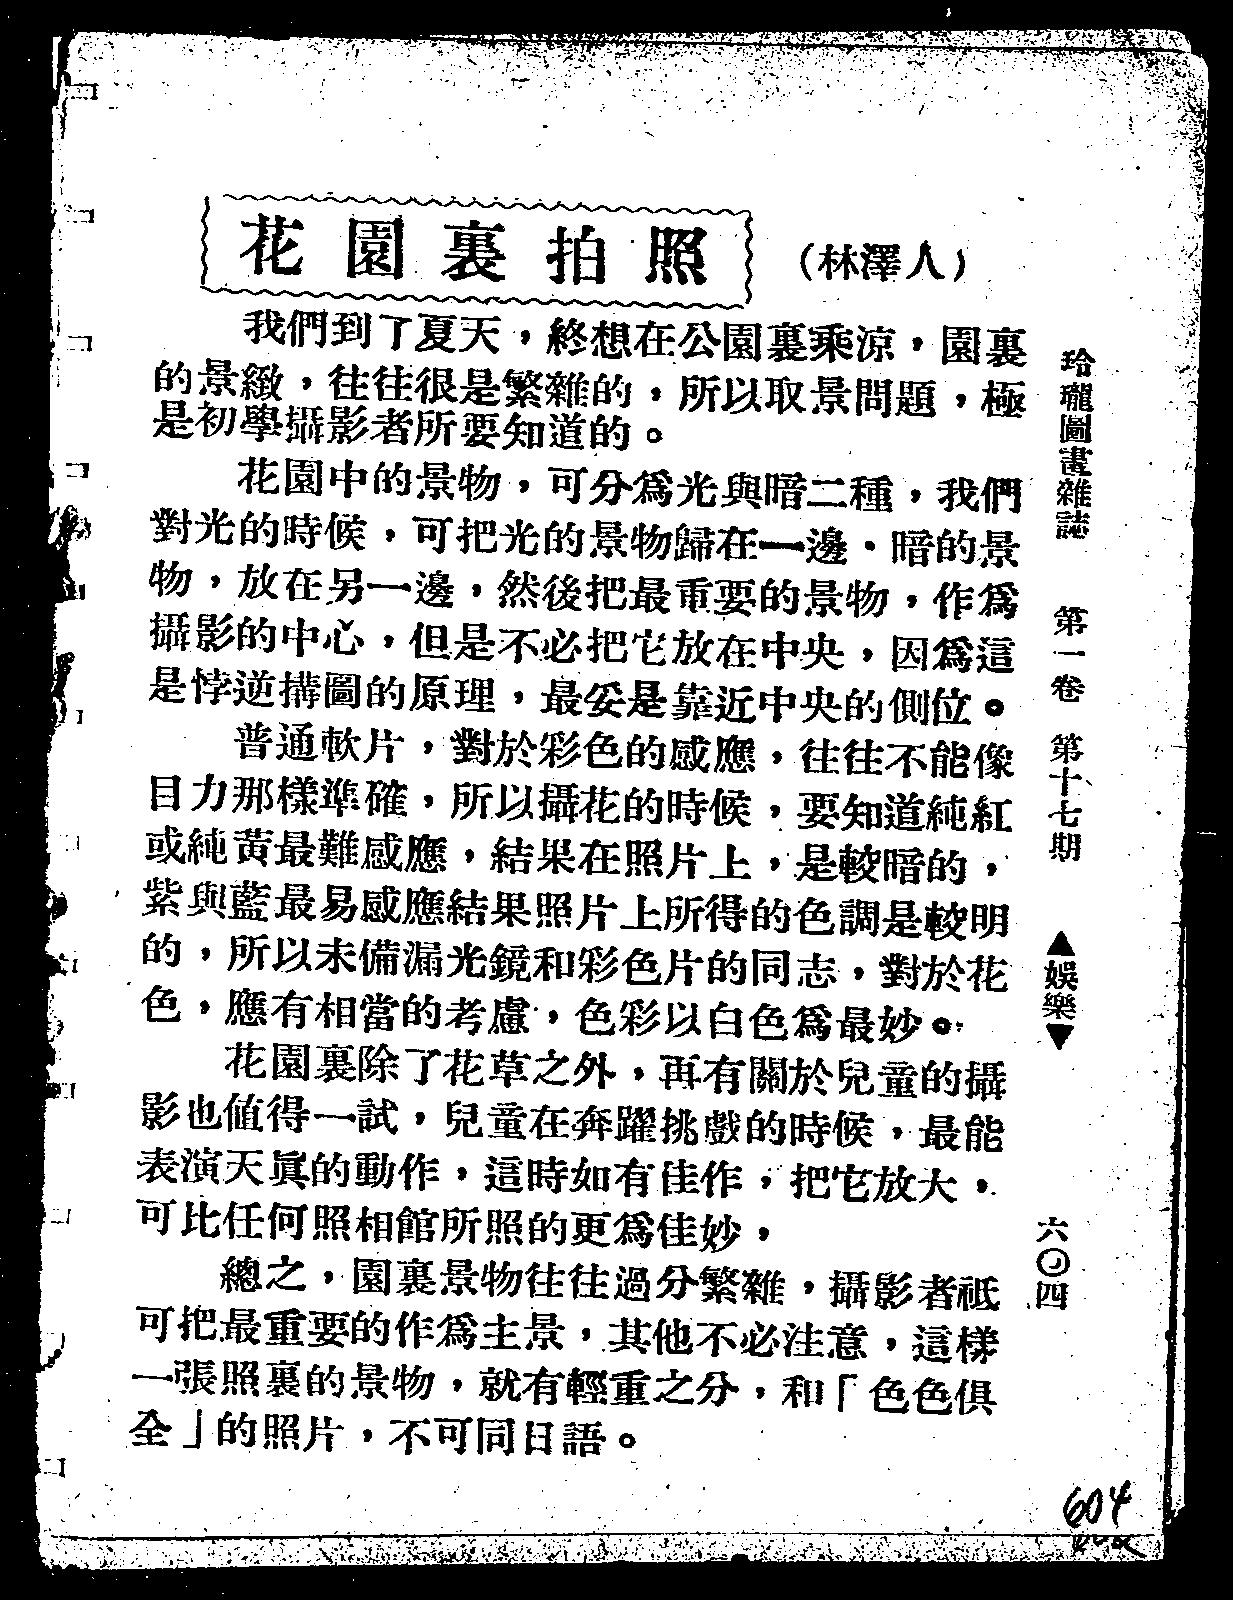 花園裏拍照
（林澤人）
我們到了夏天，終想在公園裏乘涼，園裏
的景緻，往往很是繁雜的，所以取景問題，極
是初學攝影者所要知道的。
花園中的景物，可分爲光與暗二種，我們
對光的時候，可把光的景物歸在一邊・暗的景
物，放在另一邊，然後把最重要的景物，作爲
攝影的中心，但是不必把它放在中央，因爲這
是悖逆搆圖的原理，最妥是靠近中央的側位。
普通軟片，對於彩色的感應，往往不能像
目力那樣準確，所以攝花的時候，要知道純紅
或純黃最難感應，結果在照片上，是較暗的，
紫與藍最易感應結果照片上所得的色調是較明
的，所以未備漏光鏡和彩色片的同志，對於花
色，應有相當的考慮，色彩以白色爲最妙。
花園裏除了花草之外，再有關於兒童的攝
影也值得一試，兒童在奔躍挑戲的時候，最能
表演天眞的動作，這時如有佳作，把它放大，
可比任何照相館所照的更爲佳妙，
總之，園裏景物往往過分繁雜，攝影者祗
可把最重要的作爲主景，其他不必注意，這樣
一張照裏的景物，就有輕重之分，和「色色俱
全」的照片，不可同日語。
玲瓏圖畫雜誌　第一卷　第十七期　▲娛樂▼　六〇四
604